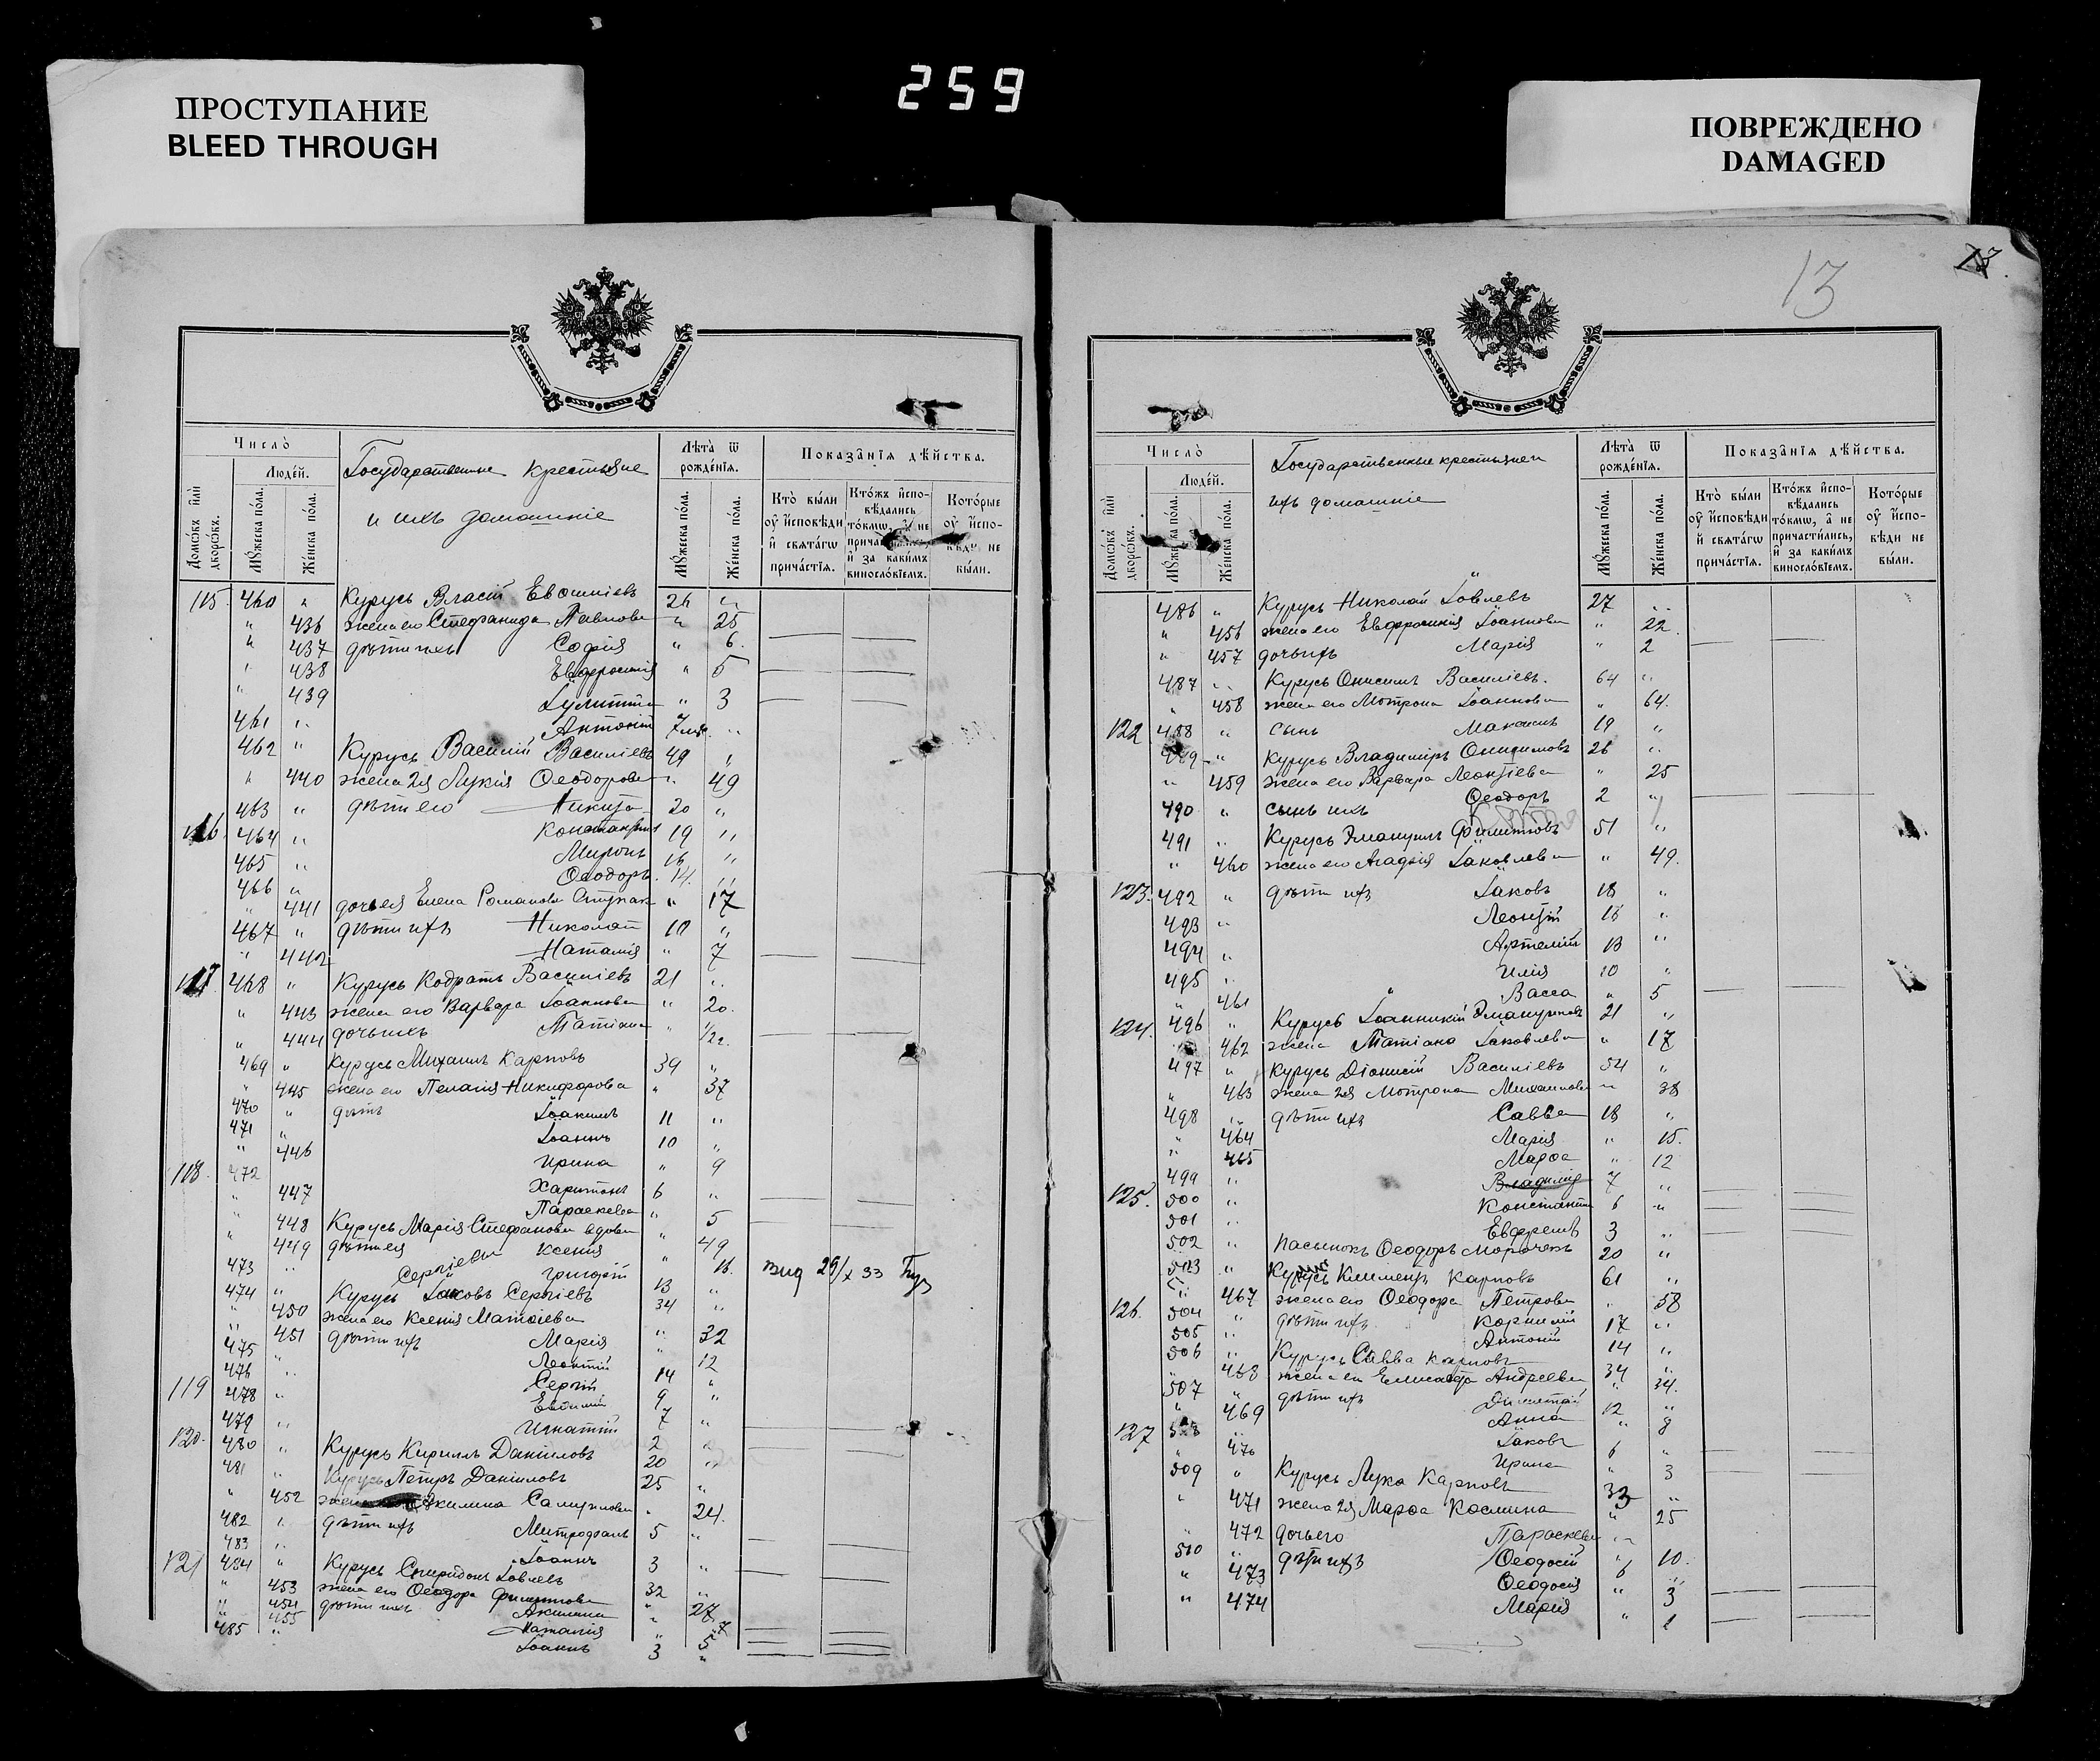 ПРОСТУПАНИЕ
BLEED THROUGH
259
ПОВРЕЖДЕНО
DAMAGED
Число̀
Людéй.
Домѡ́въ и҆̀лѝ дворѡ́въ.
Мꙋ́жеска по́ла.
Же́нска по́ла.
Государственные крестьяне
и ихъ домашніе
Лѣта̀ ѿ рожде́нїѧ.
Мꙋ́жеска по́ла.
Же́нска по́ла.
Показа̑нїѧ дѣ́йства.
Кто̀ бы́ли оу҆ и҆́сповѣди и҆ свѧта́гѡ прича́стїѧ.
Кто́жъ и҆спо-вѣдались то́кмѡ,
и҆ за каки́мъ винословїемъ.
Кото́рые оу҆ и҆́спо-вѣди не бы́ли.
115. 460 " Курусь Власій 26 "
" 436 жена его Стефанида Павлова " 25
" 437 дѣти ихъ Софія " 6.
" 438 Евфросинія " 5
" 439 Іулитта " 3
461 " Антоній 7 "
462 " Курусь Василій Василіевъ 49 "
" 440 жена 2я Лукія Ѳеодорова " 49
463 " дѣти его Никита 20 "
116. 464 " Константинъ 19 "
465 " Миронъ 16 "
466 " Ѳеодоръ 14. "
" 441 дочь ея Елена Романова " 17
467 " дѣти ихъ Николай 10 "
" 442 Наталія " 7
117 468 " Курусь Кодратъ Василіевъ 21 "
" 443 жена его Варвара Іоаннова " 20.
" 444 дочь ихъ Татіана " 1/2.
469 " Курусь Михаилъ Карповъ 39 "
" 445 жена его Пелагія Никифорова " 37
470 " дѣти Іоакимъ 11 "
471 " Іоаннъ 10 "
" 446 Ирина " 9
118. 472 Харитонъ 6 "
" 447 Параскева " 5
" 448 Курусь Марія Стефанова вдова " 49
" 449 дѣти ея Сергіевы Ксенія " 16.
473 " Григорій 13 "
474 " Курусь Іаковъ Сергіевъ 34 "
" 450 жена его Ксенія Матѳіева " 32
" 451 дѣти ихъ Марія " 12
475 " Леонтій 14 "
476 " Сергій 9 "
119 478 " Евѳимій 7 "
479 " Игнатій 2 "
120. 480 " Курусь Кириллъ Даніиловъ 20 "
481 " Курусь Петръ Даніиловъ 25 "
" 452 жена Акилина " 24.
482 " дѣти ихъ Митрофанъ 5 "
483 " Іоаннъ 3 "
121 484 " Курусь Спиридонъ Іовлевъ 32 "
" 453 жена его Ѳеодора Филиппова " 27
" 454 дѣти ихъ Акилина " 7
" 455 Наталія " 5
485 " Іоаннъ 3 "
13
Число̀
Людéй.
Домѡ́въ и҆̀лѝ дворѡ́въ.
Мꙋ́жеска по́ла.
Же́нска по́ла.
Государственные крестьяне и
ихъ домашніе
Лѣта̀ ѿ рожде́нїѧ.
Мꙋ́жеска по́ла.
Же́нска по́ла.
Показа̑нїѧ дѣ́йства.
Кто̀ бы́ли оу҆ и҆́сповѣди и҆ свѧта́гѡ прича́стїѧ.
Кто́жъ и҆спо-вѣдались то́кмѡ, а҆ не причасти́лись, и҆ за каки́мъ винословїемъ.
Кото́рые оу҆ и҆́спо-вѣди не бы́ли.
486 " Курусь Николай Іовлевъ 27 "
" 456 жена его Евфросинія Іоаннова " 22.
" 457 дочь ихъ Марія " 2
487 " Курусь Онисимъ Василіевъ. 64 "
" 458 жена его Мотрона Іоаннова " 64.
122 488 " сынъ Максимъ 19 "
489 " Курусь Владиміръ Онисимовъ 26 "
" 459 жена его Варвара Леонтіева " 25
490 " сынъ ихъ Ѳеодоръ 2 "
491 " Курусь Эмануилъ Филипповъ 51 "
" 460 жена его Агафія Іаковлева " 49.
123. 492 " дѣти ихъ Іаковъ 18 "
493 " Леонтій 16 "
494 " Артемій 13 "
495 " Илія 10 "
" 461 Васса " 5
124. 496 " Курусь Іоанникій Эмануиловъ 21 "
462 жена Татіана Іаковлева " 17
497 " Курусь Діонисій Василіевъ 54 "
" 463 жена 2я Мотрона Михаилова " 38
498 " дѣти ихъ Савва 18 "
" 464 Марія " 15.
" 465 Марѳа " 12
499 " Владиміръ 7 "
125. 500 " Константинъ 6 "
501 " Евфремъ 3 "
502 " пасынокъ Ѳеодоръ 20 "
503 " Курусь Климентъ Карповъ 61 "
" 467 жена его Ѳеодора Петрова " 58
126. 504 " дѣти ихъ Корнилій 17 "
505 " Антоній 14 "
506 " Курусь Савва Карповъ 34 "
" 468 жена его Елисавета Андреева " 34.
507 " дѣти ихъ 12 "
" 469 Анна " 8
127 Іаковъ 6 "
" 470 Ирина " 3
509 " Курусь Лука Карповъ 33 "
" 471 жена 2я Марѳа Космина " 25
" 472 дочь его Параскева " 10.
510 " дѣти ихъ Ѳеодосій 6 "
" 473 Ѳеодосія " 3
" 474 Марія " 1